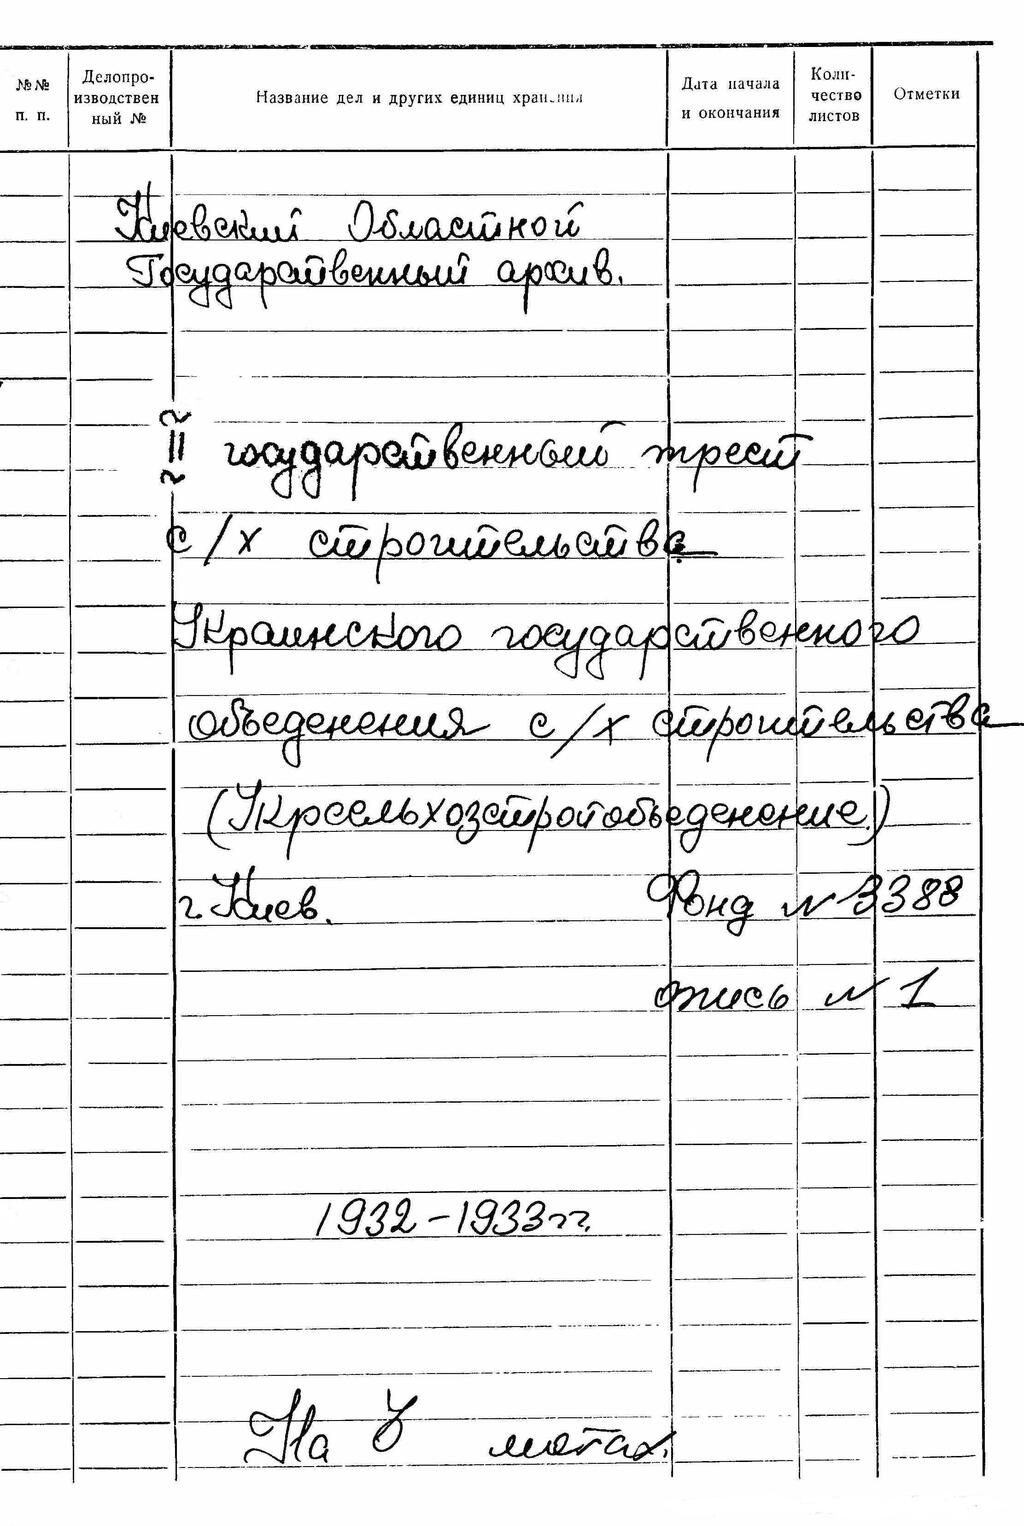 №№ п. п.
Делопро-
изводствен
ный №
Название дел и других единиц хранения
Дата начала
и окончания
Коли-
чество
листов
Отметки
Киевский Областной
Государственный архив.
II государственный трест
с/х строительства
Украинского государственного
объеденения с/х строительства
(Укрсельхозстройобъеденение)
г. Киев. Фонд N 3388
опись N 1
1932-1933 гг.
На листах.